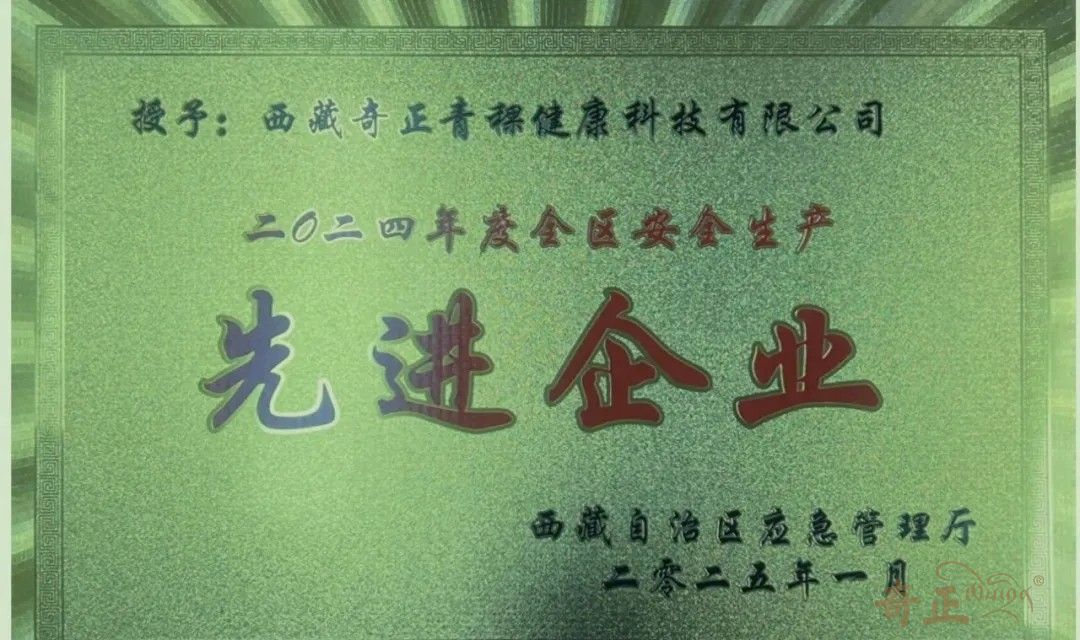 授予：西藏奇正青稞健康科技有限公司
二0二四年度全区安全生产
先进企业
西藏自治区应急管理厅
二零二五年一月
奇正